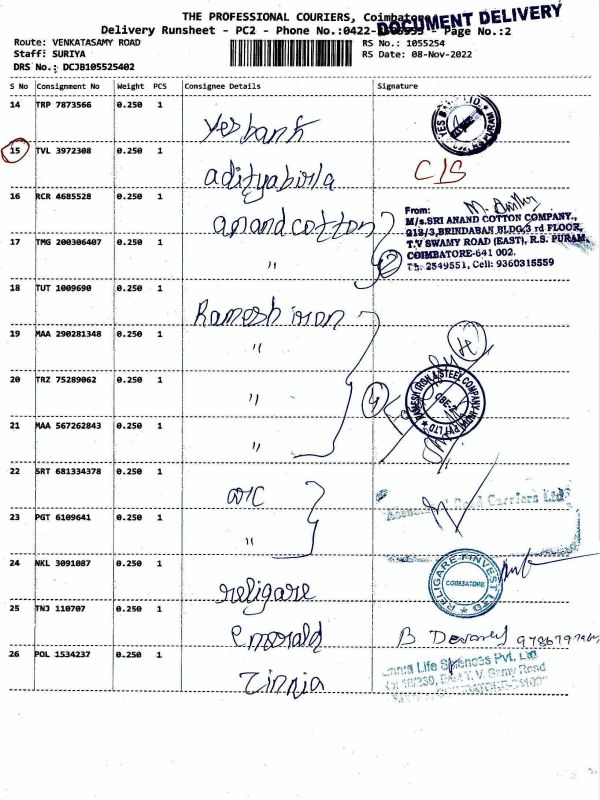 THE PROFESSIONAL COURIERS, Coimbatore
DOCUMENT DELIVERY
Delivery Runsheet - PC2 - Phone No.:0422- Page No.:2
Route: VENKATASAMY ROAD
RS No.: 1055254
Staff: SURIYA
RS Date: 08-Nov-2022
DRS No.: DCJB105525402
S No Consignment No Weight PCS Consignee Details Signature
14 TRP 7873566 0.250 1 Yes bank
YES BANK LTD.
15 TVL 3972308 0.250 1 adityabirla CLS
16 RCR 4685528 0.250 1 anand cotton
From:
M/s.SRI ANAND COTTON COMPANY.,
218/3,BRINDABAN BLDG,3 rd FLOOR,
T.V SWAMY ROAD (EAST), R.S. PURAM,
COIMBATORE-641 002.
Ph: 2549551, Cell: 9360315559
17 TMG 200306407 0.250 1 " 2
18 TUT 1009690 0.250 1 Ramesh iron
19 MAA 290281348 0.250 1 "
4
20 TRZ 75289062 0.250 1 " 4
RAMESH IRON & STEEL COMPANY INDIA PVT LTD
CBE-2
21 MAA 567262843 0.250 1 "
22 SRT 681334378 0.250 1
Associated Road Carriers Ltd
23 PGT 6109641 0.250 1 "
24 NKL 3091087 0.250 1 religare
RELIGARE FINVEST LTD
COIMBATORE
25 TNJ 110707 0.250 1 Emorald B
26 POL 1534237 0.250 1 Zinnia
Life Sciences Pvt. Ltd
East T. V. Samy Road